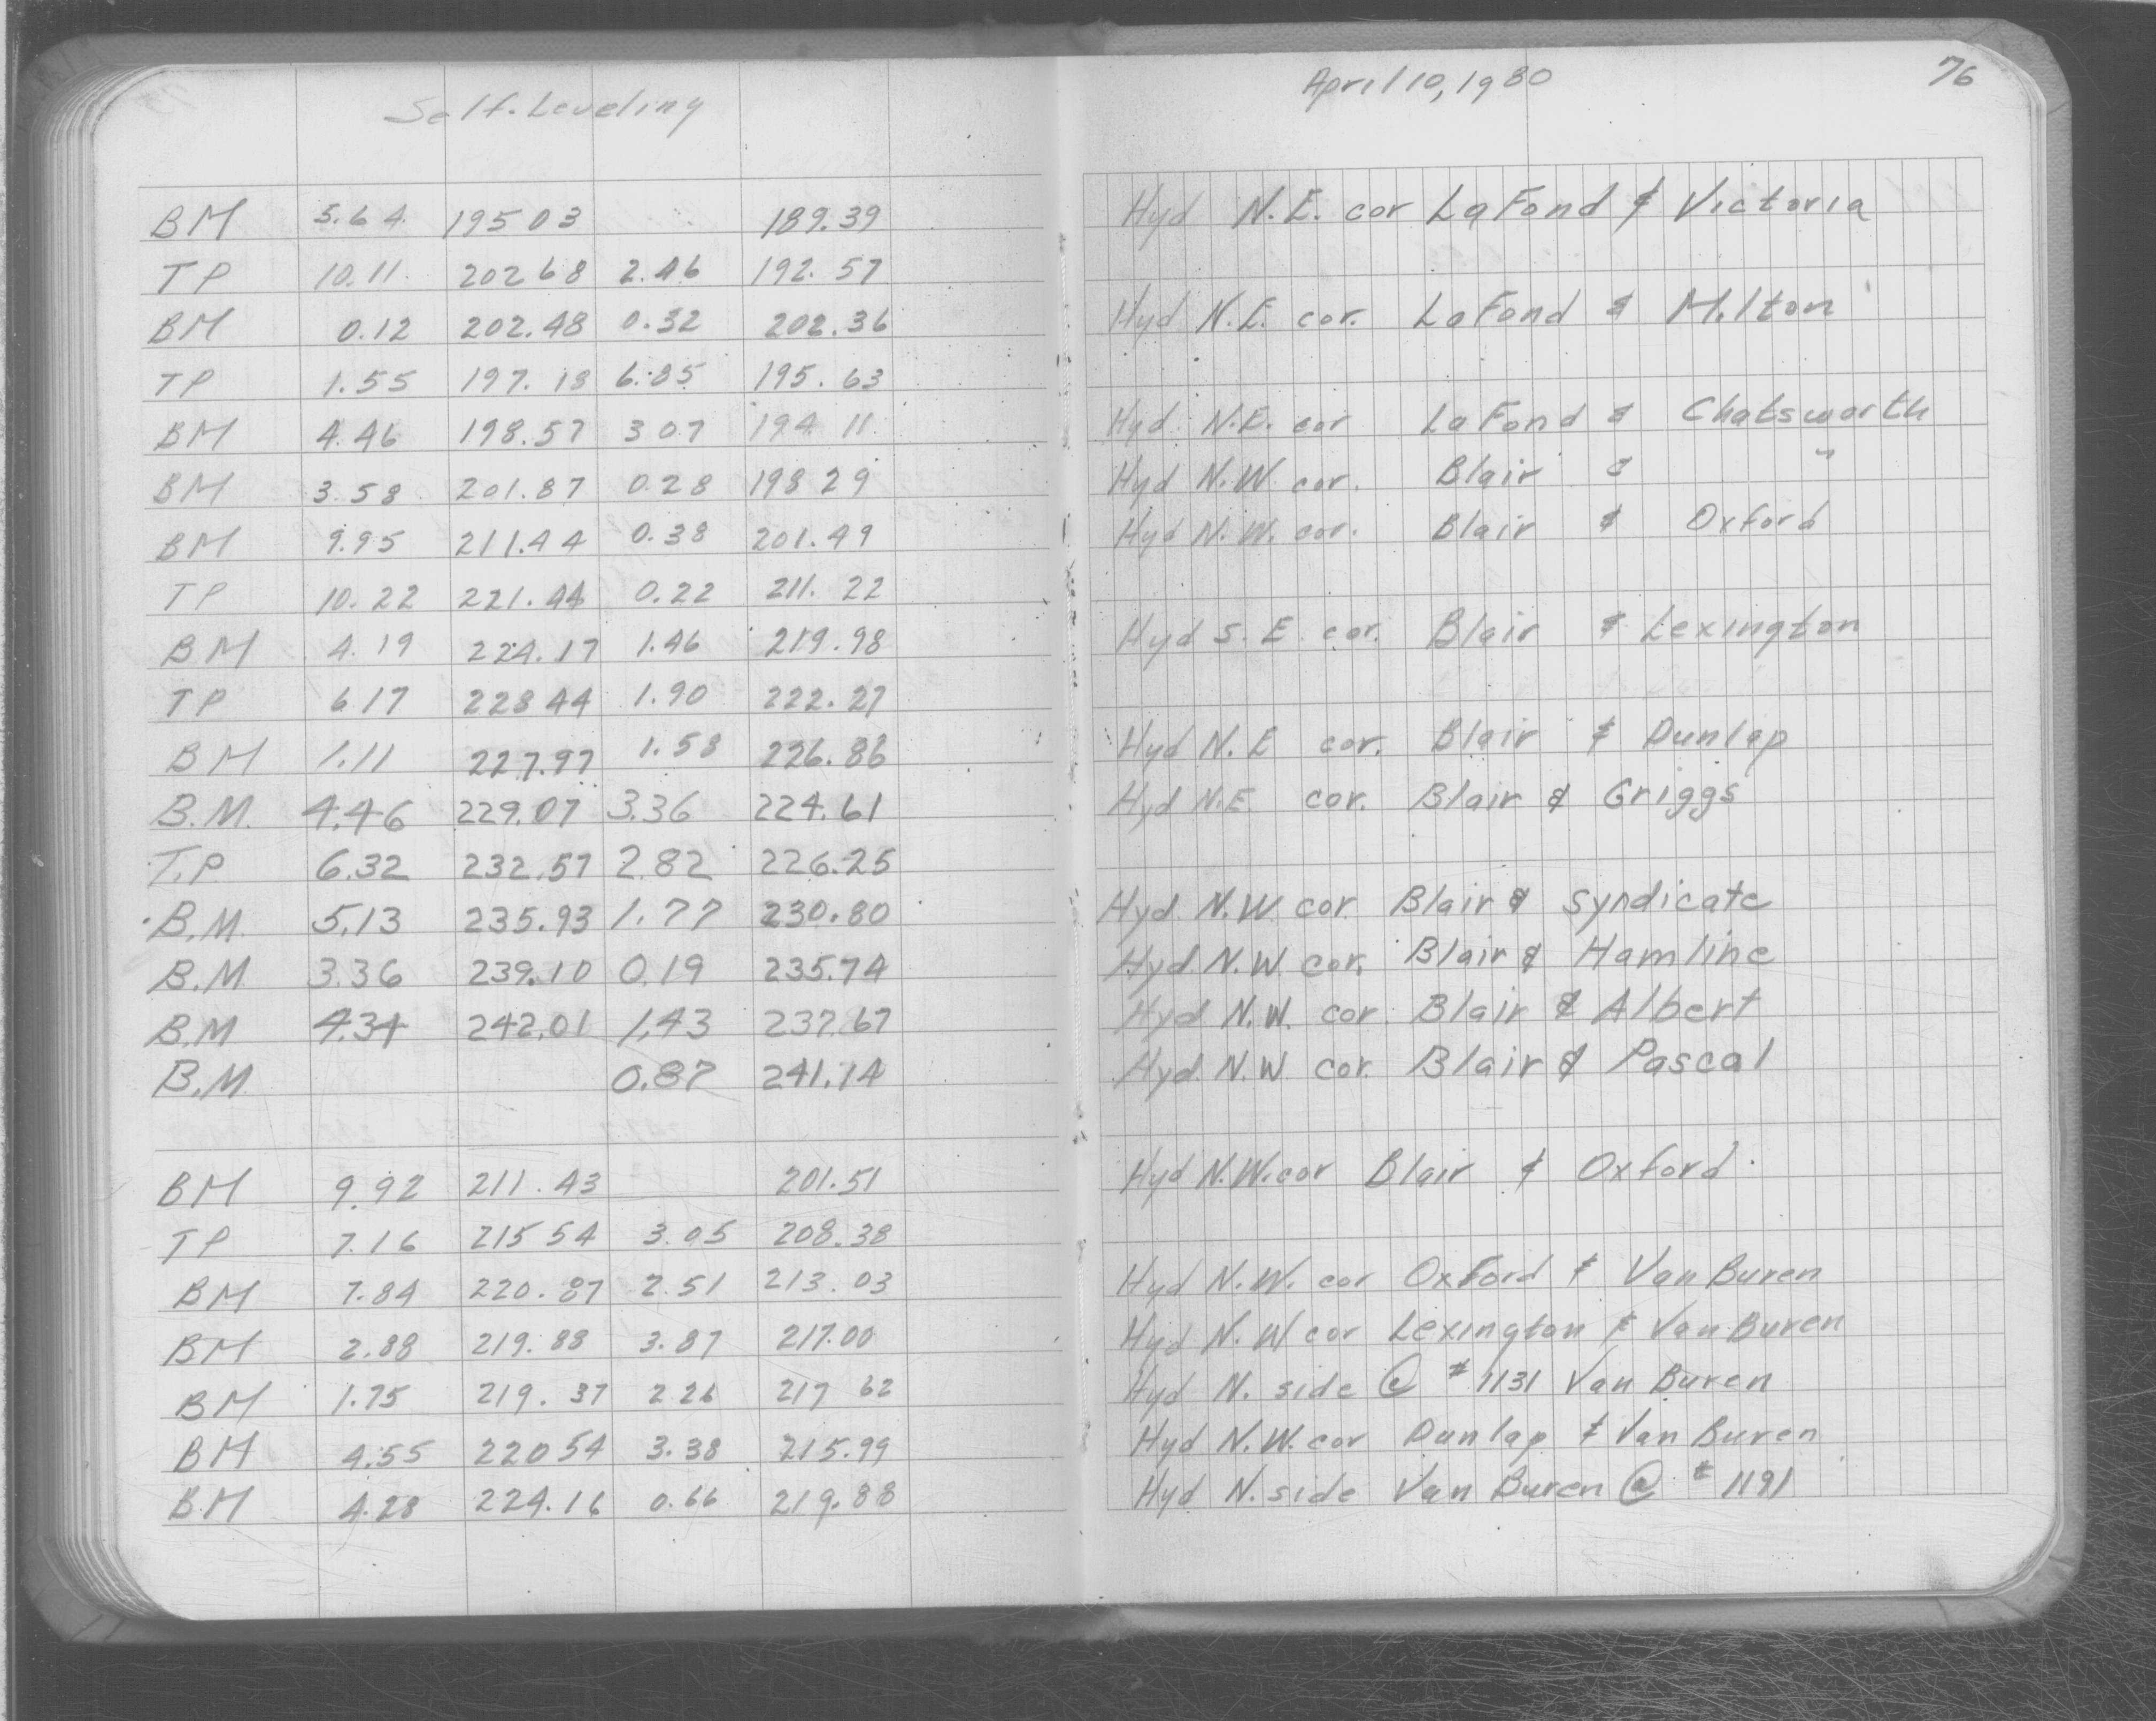 Self-Leveling April 10, 1980 76
BM 5.64 195 03 189.39 Hyd N.E. cor LaFond & Victoria
TP 10.11 202 68 2.46 192.57
BM 0.12 202.48 0.32 202.36 Hyd N.E. cor. LaFond & Milton
TP 1.55 197.18 6.85 195.63
BM 4.46 198.57 3 07 194 11 Hyd N.E. cor LaFond & Chatsworth
BM 3.58 201.87 0.28 198 29 Hyd N.W. cor. Blair & "
BM 9.95 211.44 0.38 201.49 Hyd N.W. cor. Blair & Oxford
TP 10.22 221.44 0.22 211.22
BM 4.19 224.17 1.46 219.98 Hyd S.E. cor. Blair & Lexington
TP 6 17 228 44 1.90 222.27
BM 1.11 227.97 1.58 226.86 Hyd N.E cor. Blair & Dunlap
B.M. 4.46 229.07 3.36 224.61 Hyd N.E cor. Blair & Griggs
T.P. 6.32 232.57 2.82 226.25
B.M. 5.13 235.93 1.77 230.80 Hyd. N.W. cor. Blair & Syndicate
B.M. 3.36 239.10 0.19 235.74 Hyd. N.W. cor. Blair & Hamline
B.M 4.34 242.01 1.43 237.67 Hyd N.W. cor. Blair & Albert
B.M 0.87 241.14 Hyd. N.W cor. Blair & Pascal
BM 9.92 211.43 201.51 Hyd N.W.cor Blair & Oxford
TP 7.16 215 54 3.05 208.38
BM 7.84 220.87 2.51 213.03 Hyd N.W. cor Oxford & Van Buren
BM 2.88 219.88 3.87 217.00 Hyd N.W cor Lexington & Van Buren
BM 1.75 219.37 2 26 217 62 Hyd N. side @ #1131 Van Buren
BM 4.55 220 54 3.38 215.99 Hyd N.W. cor Dunlap & Van Buren
BM 4.28 224.16 0.66 219.88 Hyd N. side Van Buren @ #1191